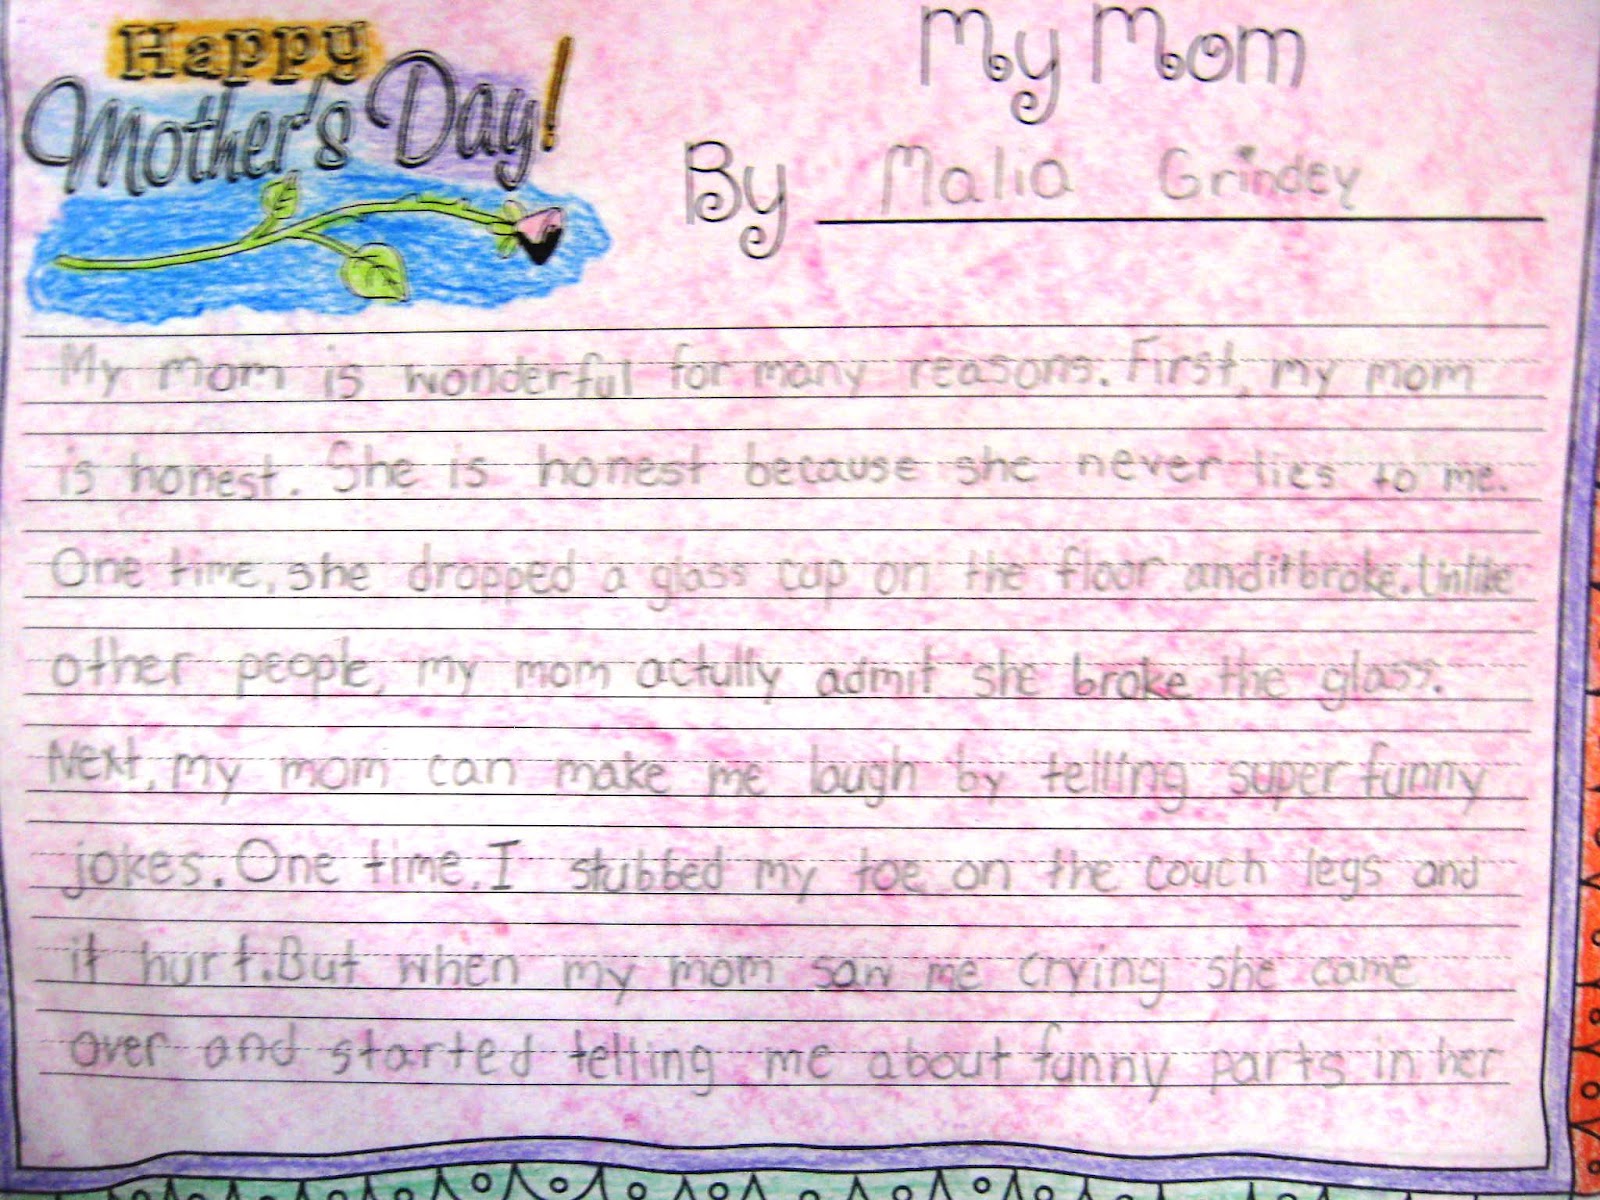 Happy
Mother's Day!
My Mom
By Malia Grindey
My mom is wonderful for many reasons. First, my mom
is honest. She is honest because she never lies to me.
One time, she dropped a glass cap on the floor and it broke. Unlike
other people, my mom actully admit she broke the glass.
Next, my mom can make me laugh by telling super funny
jokes. One time, I stubbed my toe on the couch legs and
it hurt. But when my mom saw me crying she came
over and started telling me about funny parts in her